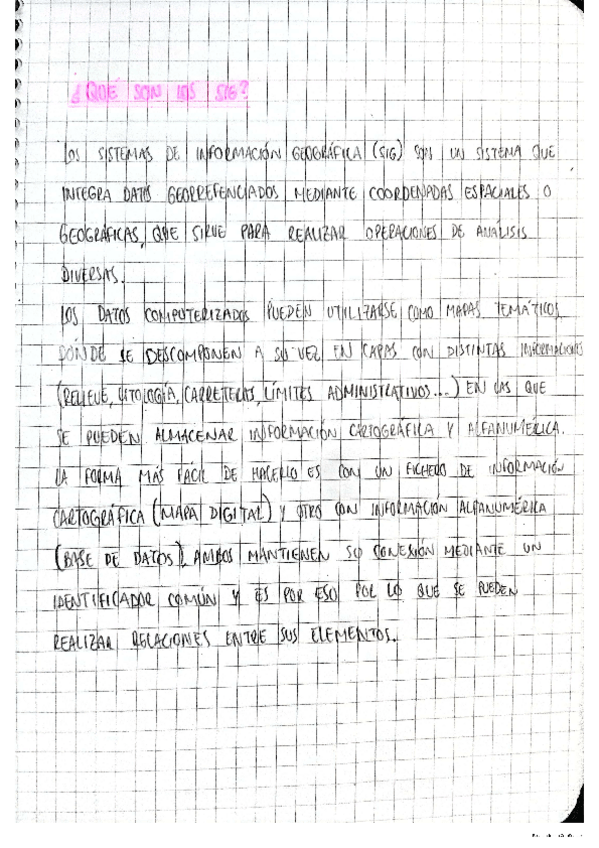 ¿QUÉ SON LOS SIG?
LOS SISTEMAS DE INFORMACIÓN GEOGRÁFICA (SIG) SON UN SISTEMA QUE
INTEGRA DATOS GEORREFENCIADOS MEDIANTE COORDENADAS ESPACIALES O
GEOGRÁFICAS, QUE SIRVE PARA REALIZAR OPERACIONES DE ANÁLISIS
DIVERSAS.
LOS DATOS COMPUTERIZADOS PUEDEN UTILIZARSE COMO MAPAS TEMÁTICOS
DONDE SE DESCOMPONEN A SU VEZ EN CAPAS CON DISTINTAS INFORMACIONES
(RELIEVE, LITOLOGÍA, CARRETERAS, LÍMITES ADMINISTRATIVOS...) EN LAS QUE
SE PUEDEN ALMACENAR INFORMACIÓN CARTOGRÁFICA Y ALFANUMÉRICA.
LA FORMA MÁS FÁCIL DE HACERLO ES CON UN FICHERO DE INFORMACIÓN
CARTOGRÁFICA (MAPA DIGITAL) Y OTRO CON INFORMACIÓN ALFANUMÉRICA
(BASE DE DATOS). AMBOS MANTIENEN SU CONEXIÓN MEDIANTE UN
IDENTIFICADOR COMÚN Y ES POR ESO POR LO QUE SE PUEDEN
REALIZAR RELACIONES ENTRE SUS ELEMENTOS.